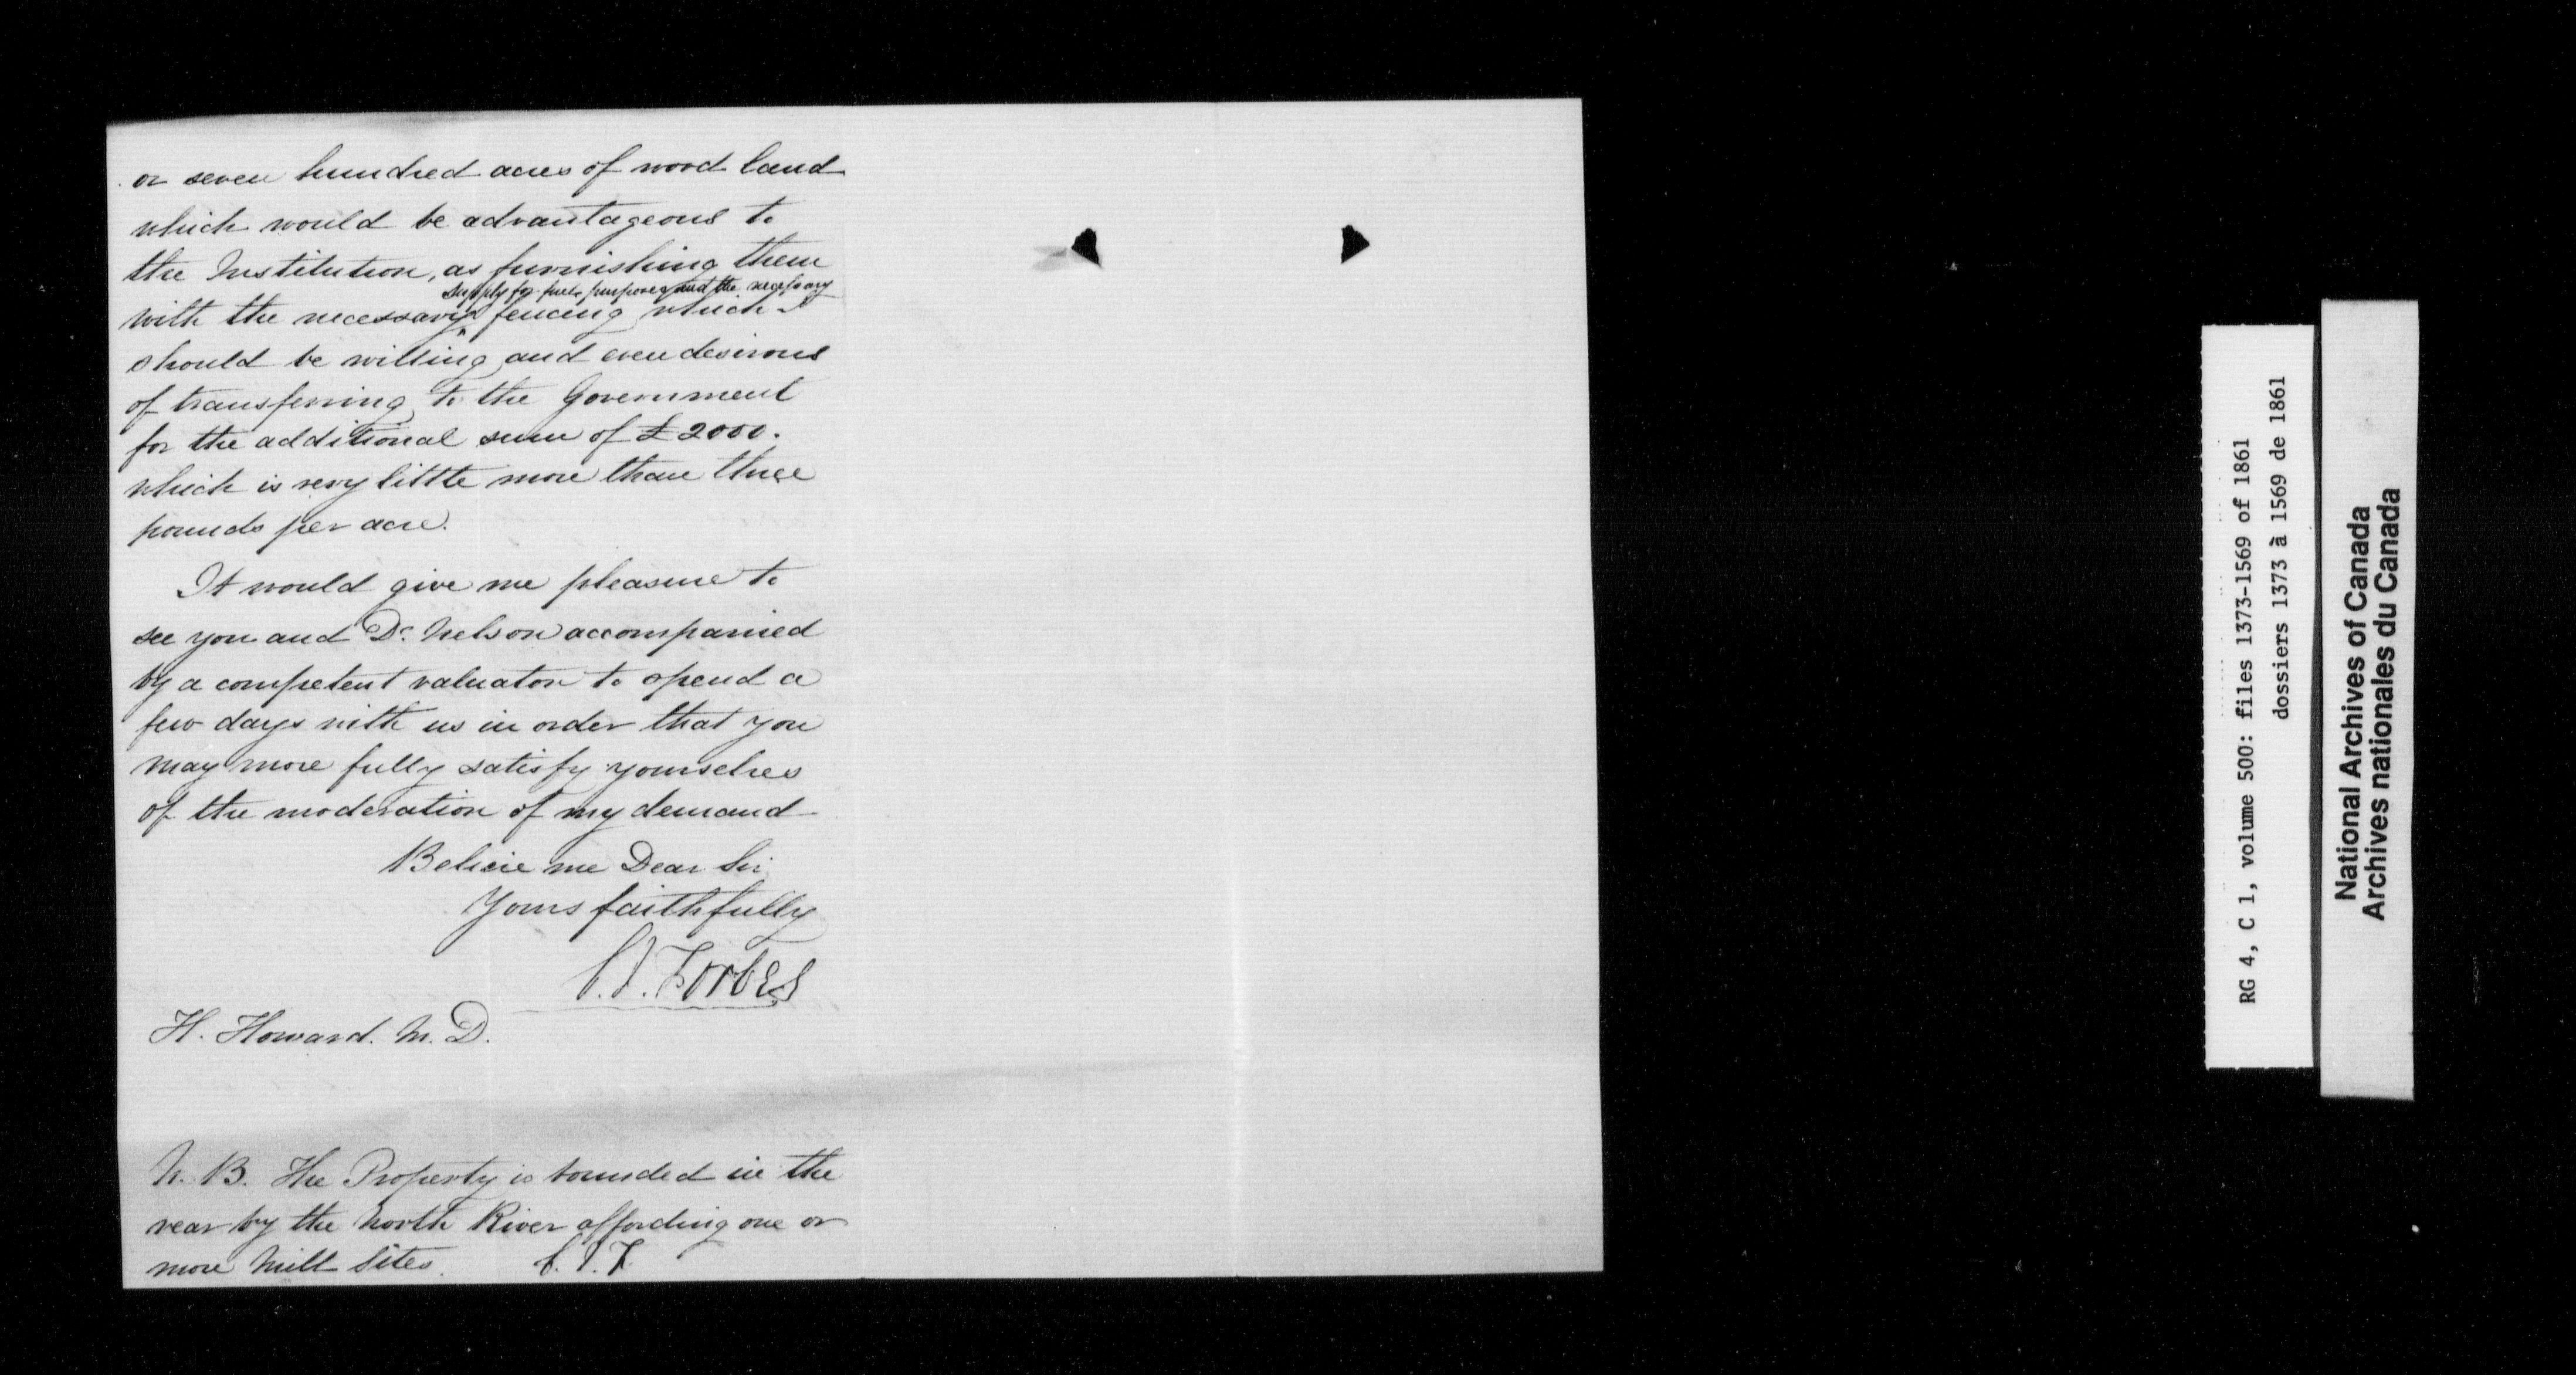 or seven hundred acres of wood land
which would be advantageous to
the Institution, as furnishing them
supply for fuel purposes and the necessary
with the necessary fencing which I
should be willing and even desirous
of transferring to the Government
for the additional sum of £2000.
which is very little more than three
pounds per acre.
It would give me pleasure to
see you and Dr. Nelson accompanied
by a competent valuator to spend a
few days with us in order that you
may more fully satisfy yourselves
of the moderation of my demand
Believe me Dear Sir
Yours faithfully
C.J. Forbes
H. Howard. M. D.
N. B. The Property is bounded in the
rear by the North River affording one or
more Mill Sites. C. J. F.
RG 4, C 1, volume 500: files 1373-1569 of 1861
dossiers 1373 à 1569 de 1861
National Archives of Canada
Archives nationales du Canada